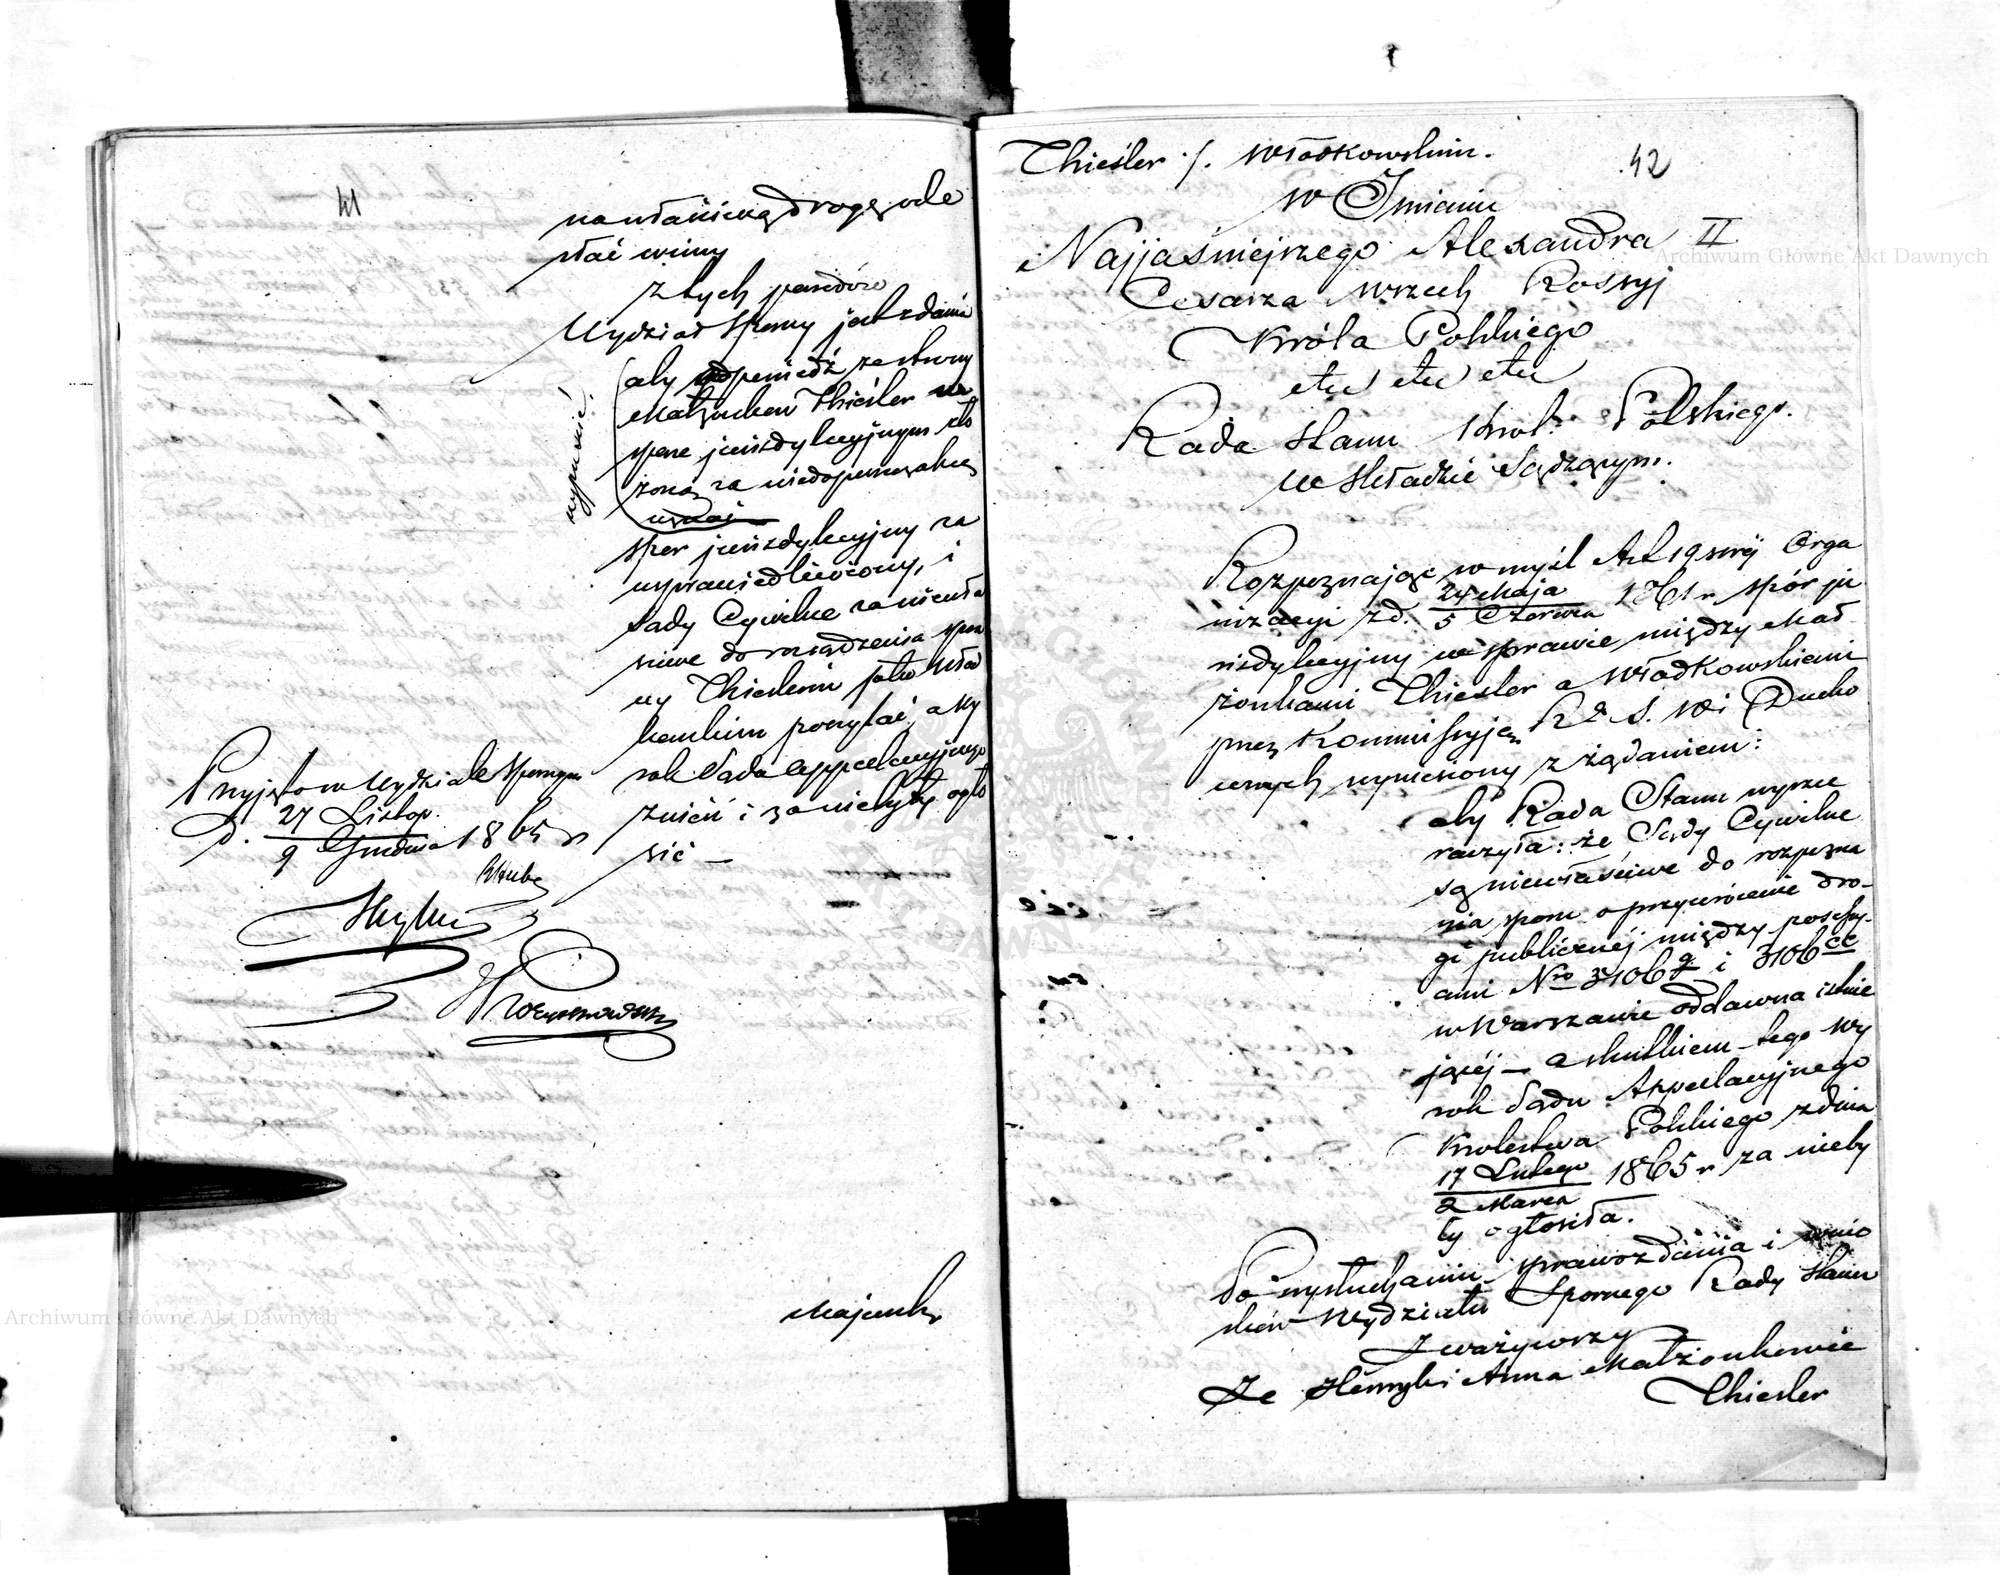 41
na właściwą drogę ode
słać winny
Z tych powodów
Wydział Sporny jest zdania
wypuścić!
aby odpowiedź ze strony
Małżonków Thiesler na
sporze jurisdykcyjnym zło
żoną za niedopuszczalną
uznać
spór jurisdykcyjny za
usprawiedliwiony, i
Sądy Cywilne za niewła
ściwe do rozsądzenia spra
wy Thieslerów jako Wład
kowskim poczytać, a Wy
rok Sądu Appellacyjnego
znieść i za niebyły ogło
sić —
Przyjęto w Wydziale Spornym
d. 27 Listop.
9 Grudnia 1865 r
Thiesler ·/. Władkowskim.
42
w Imieniu
Najjaśniejszego Alexandra II
Cesarza Wszech Rossyj
Króla Polskiego
etc etc etc
Rada Stanu Król: Polskiego.
we składzie Sądzącym.
Rozpoznając w myśl Art 19 swéj Orga
nizacyi z d. 24 Maja
5 Czerwca 1861 r spór ju
risdykcyjny w sprawie między Mał
żonkami Thiesler a Władkowskiemi
przez Kommissyją R. S. W. i Ducho
wnych wyniesiony z żądaniem:
aby Rada Stanu wyrze
raczyła: że Sądy Cywilne
są niewłaściwe do rozpozna
nia sporu o przywrócenie dro-
gi publicznéj między possesy-
ami Nro 3106 g i 3106 cc
w Warszawie oddawna istnie
jącéj — a skutkiem tego Wy
rok Sądu Appellacyjnego
Królestwa Polskiego z dnia
17 Lutego
2 Marca 1865 r za nieby
ły ogłosiła.
Po wysłuchaniu sprawozdania i wnio
sków Wydziału Spornego Rady Stanu
Zważywszy
Że Henryk i Anna Małżonkowie
Thiesler
Archiwum Główne Akt Dawnych
Archiwum Główne Akt Dawnych